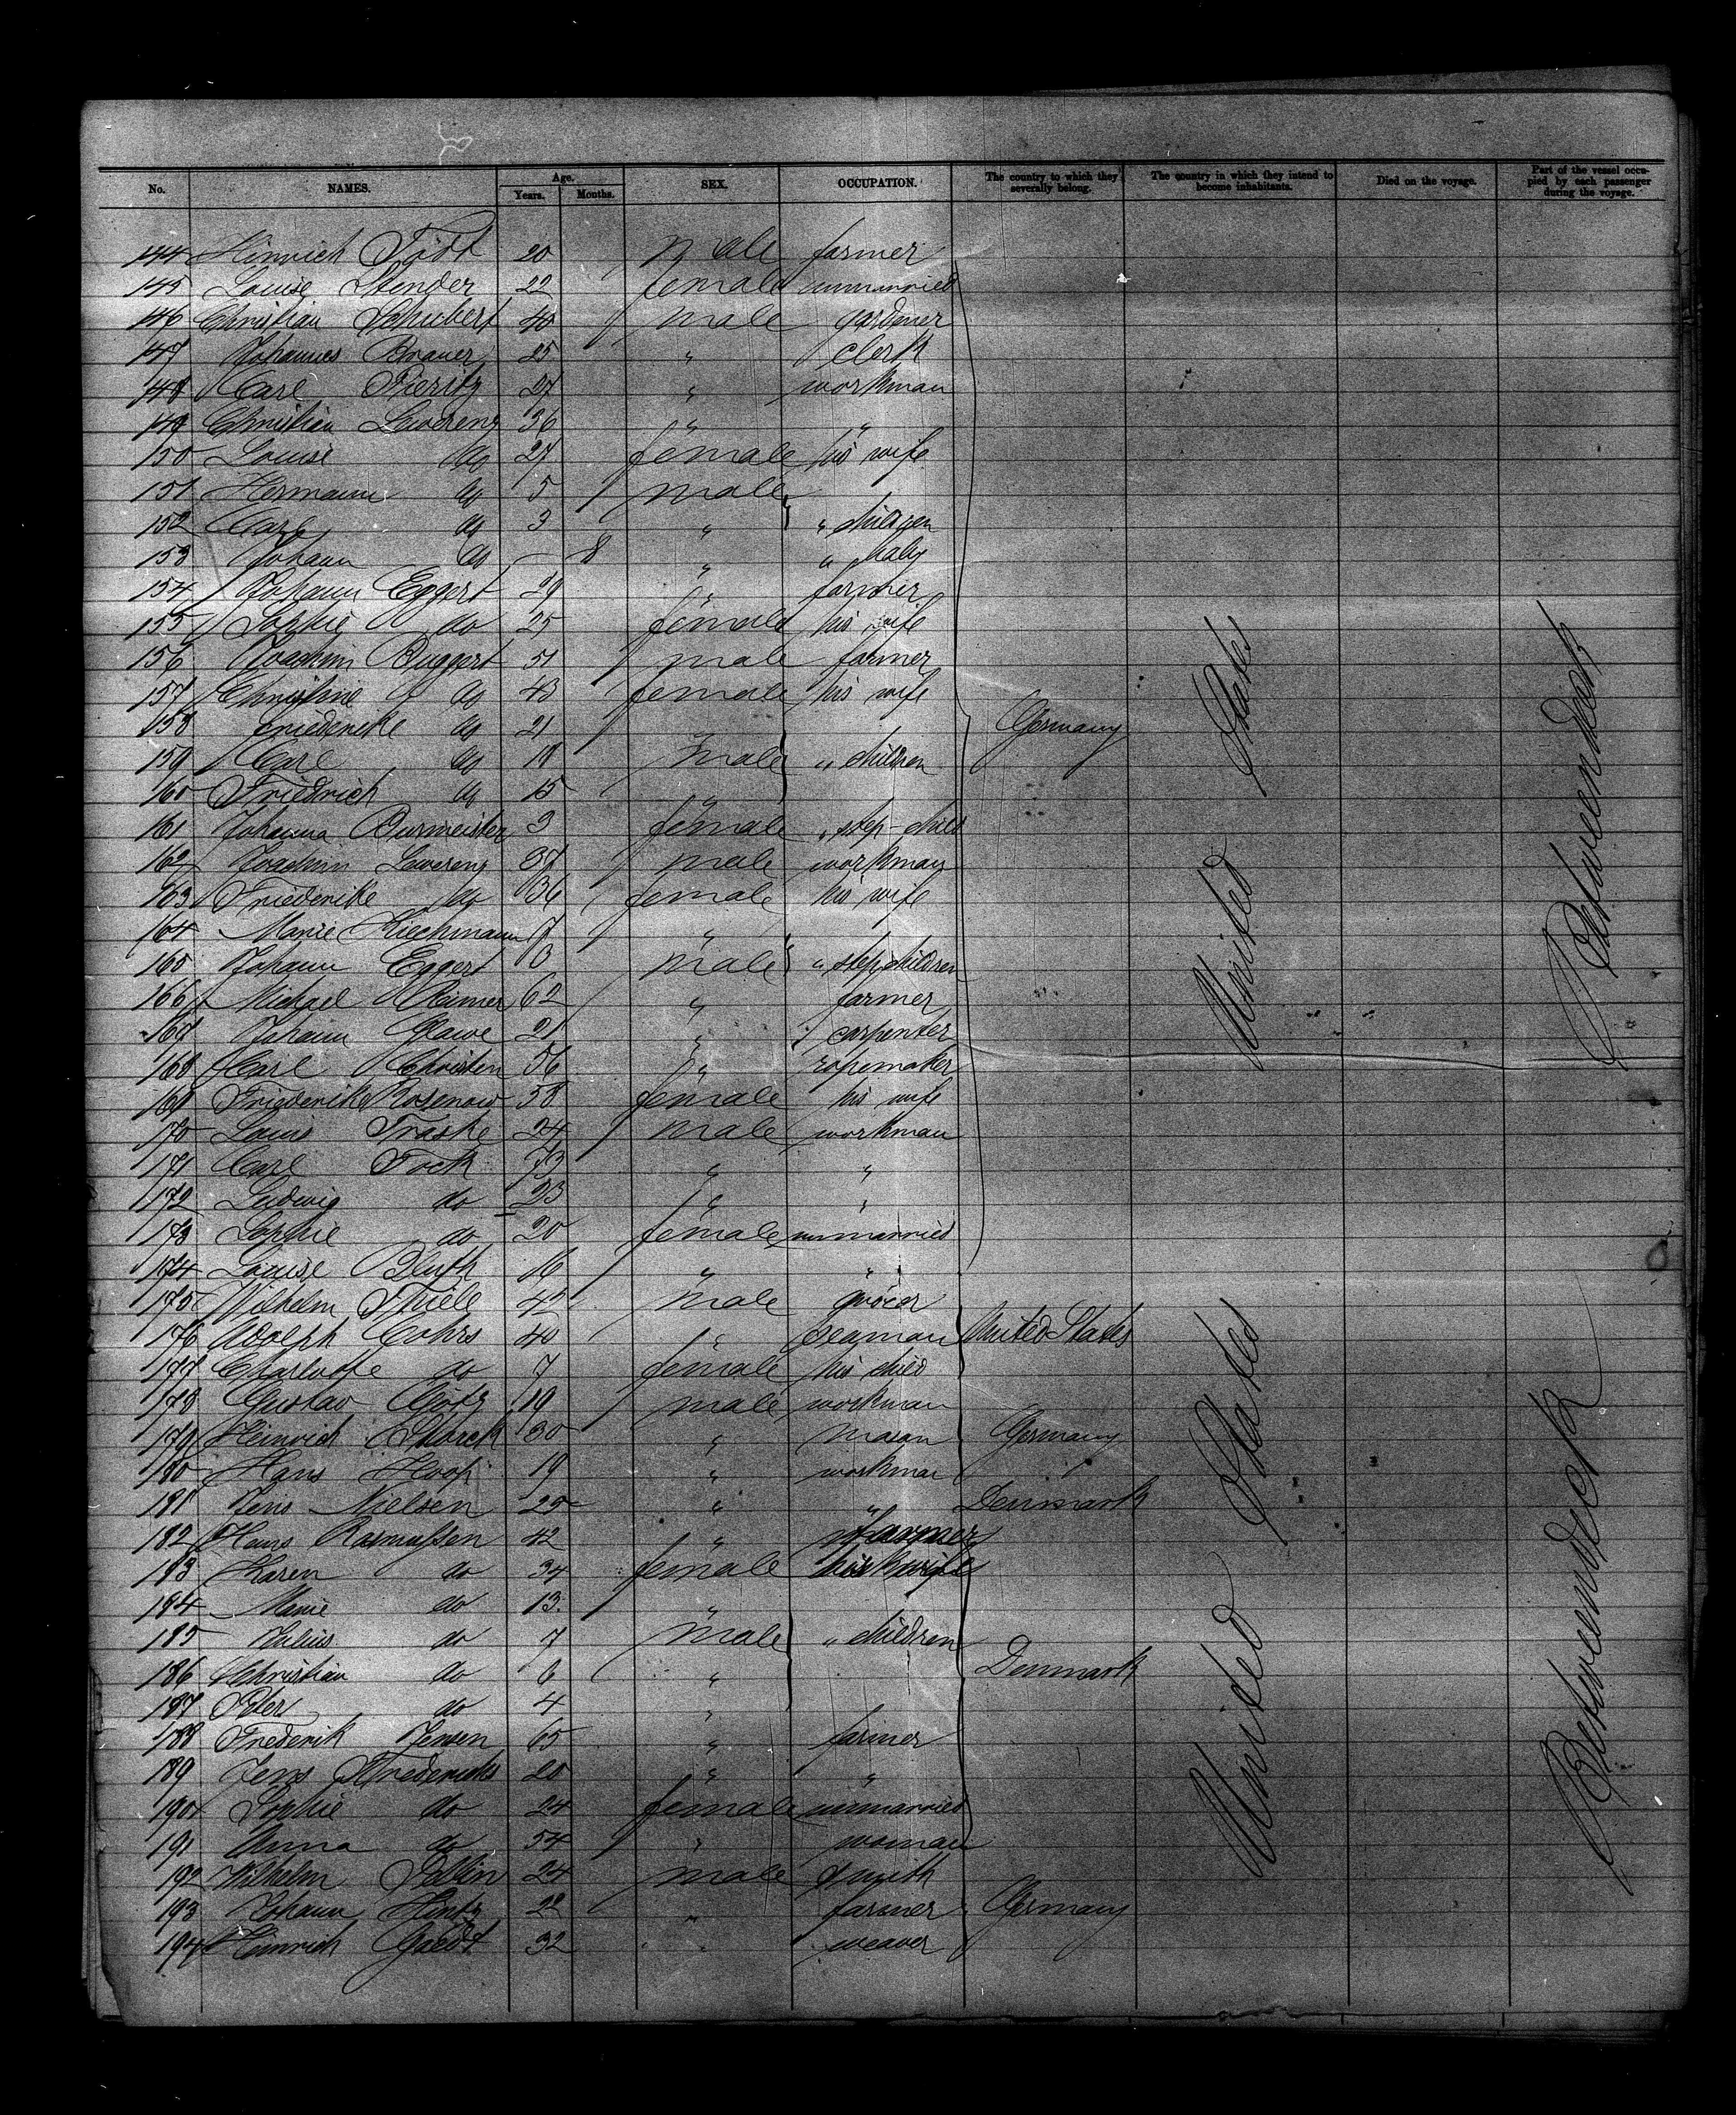 No. NAMES. Age. Years. Months. SEX. OCCUPATION. The country to which they severally belong. The country in which they intend to become inhabitants. Died on the voyage. Part of the vessel occupied by each passenger during the voyage.
144 Hinrich Tödt 20 male farmer
145 Louise Stender 22 female unmarried
146 Christian Schubert 40 male gardener
147 Johannes Brauer 25 " clerk
148 Carl Pieritz 27 " workman
149 Christian Lewerenz 36 " "
150 Louise do 27 female his wife
151 Hermann do 5 male
152 Carl do 3 " " children
153 Johann do — 8 " " baby
154 Johann Eggert 29 " farmer
155 Sophie do 25 female his wife
156 Joachim Buggert 51 male farmer
157 Christine do 43 female his wife
158 Friederike do 21 " Germany
159 Carl do 18 male " children
160 Friedrich do 15 "
161 Johanna Burmeister 3 female " step-child
162 Joachim Lewerenz 37 male workman
163 Friederike do 36 female his wife
164 Marie Kiechmann 7 "
165 Johann Eggert 3 male " stepchildren
166 Michael Reimer 62 " farmer
167 Johann Glawe 21 " carpenter
168 Carl Christen 56 " ropemaker
169 Friederike Rosenow 58 female his wife
170 Louis Traske 24 male workman
171 Carl Tock 73 " "
172 Ludwig do 23 " "
173 Sophie do 20 female unmarried
174 Louise Bluth 16 " "
175 Wilhelm Thiele 42 male grocer
176 Adolph Cohrs 40 " seaman United States
177 Charlotte do 7 female his child
178 Gustav Götz 19 male workman
179 Heinrich Storck 30 " mason Germany
180 Hans Hoop 19 " workman
181 Jens Nielsen 29 " " Denmark
182 Hans Rasmussen 42 " farmer
183 Karen do 34 female his wife
184 Marie do 13 "
185 Julius do 7 male " children
186 Christian do 6 " Denmark
187 Peter do 4 "
188 Frederik Jensen 65 " farmer
189 Jens Fredericks 20 " "
190 Sophie do 24 female unmarried
191 Anna do 54 " woman
192 Wilhelm Dablin 24 male smith
193 Johann Hintz 22 " farmer Germany
194 Heinrich Gaedt 32 " weaver
United States
Betweendeck
United States
Betweendeck